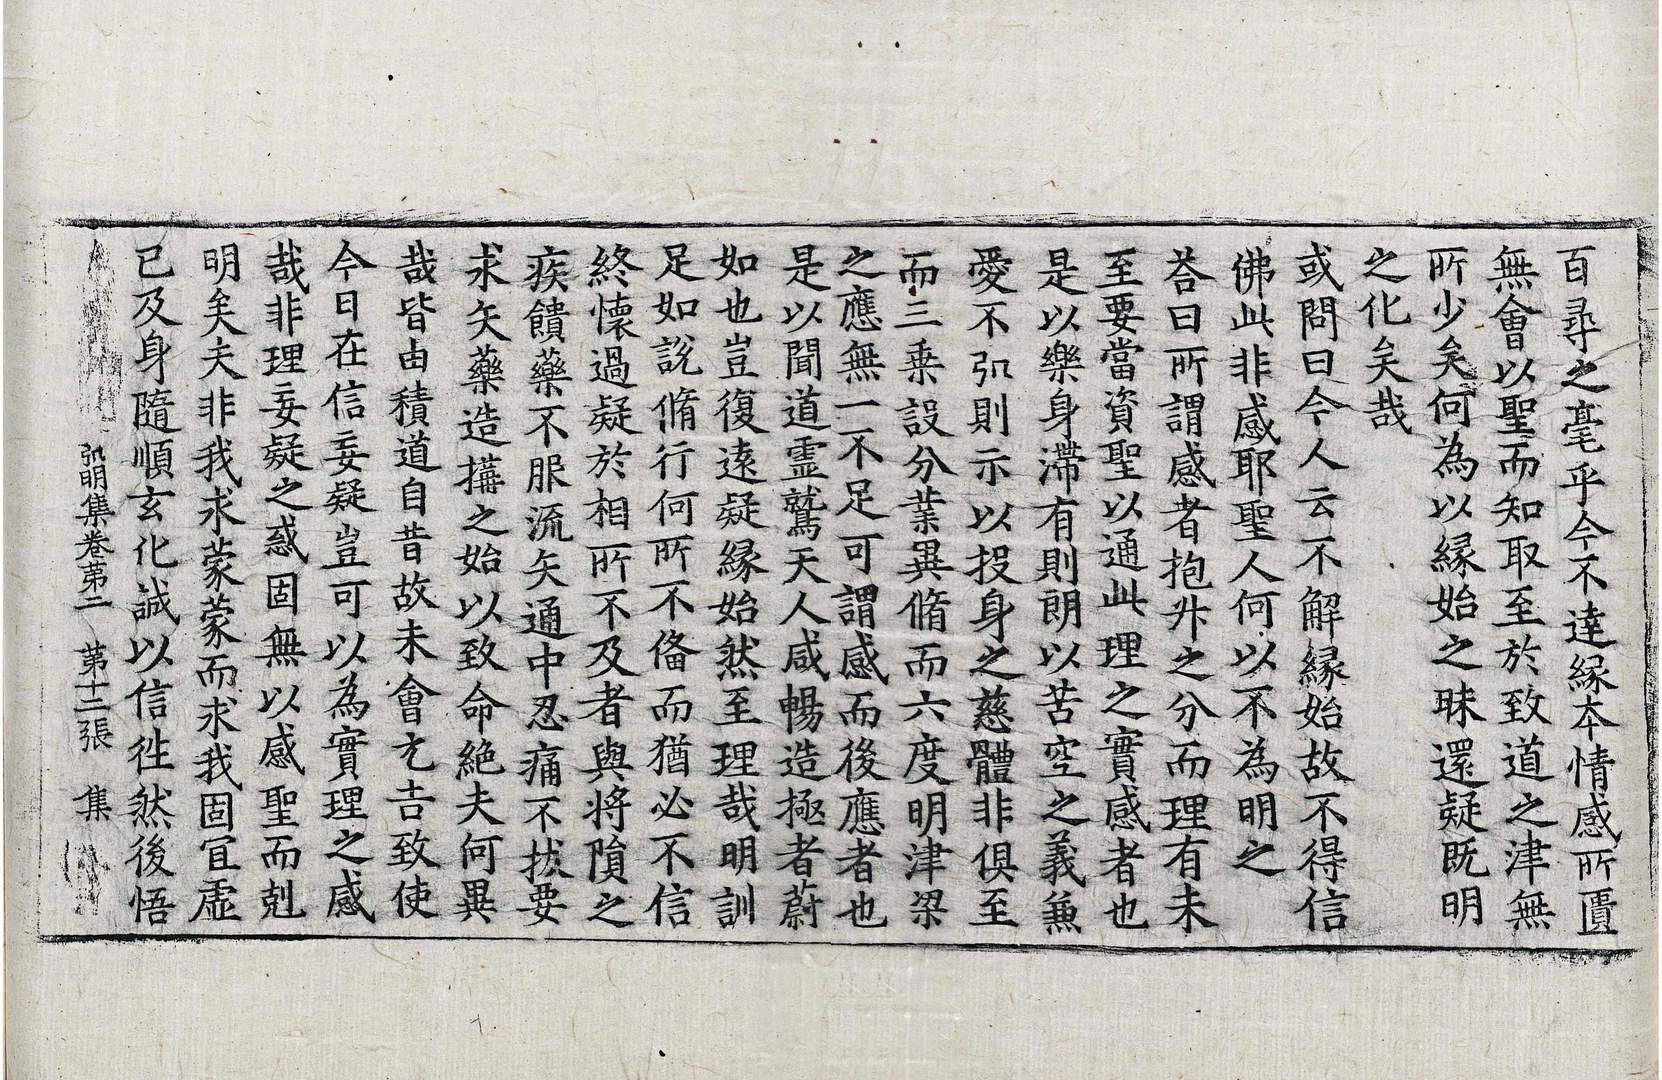 百尋之毫乎今不達緣本情感所匱
無會以聖而知取至於致道之津無
所少矣何為以緣始之昧還疑既明
之化矣哉
或問曰今人云不解緣始故不得信
佛此非感耶聖人何以不為明之
荅曰所謂感者抱升之分而理有未
至要當資聖以通此理之實感者也
是以樂身滯有則朗以苦空之義兼
愛不弘則示以投身之慈體非俱至
而三乗設分業異脩而六度明津梁
之應無一不足可謂感而後應者也
是以聞道靈鷲天人咸暢造極者蔚
如也豈復遠疑緣始然至理哉明訓
足如說脩行何所不俻而猶必不信
終懷過疑於相所不及者與将隕之
疾饋藥不服流矢通中忍痛不拔要
求矢藥造構之始以致命絶夫何異
哉皆由積道自昔故未會无吉致使
今日在信妄疑豈可以為實理之感
哉非理妄疑之惑固無以感聖而剋
明矣夫非我求蒙蒙而求我固宜虛
已及身隨順玄化誠以信徃然後悟
弘明集卷苐二 苐十二張 集